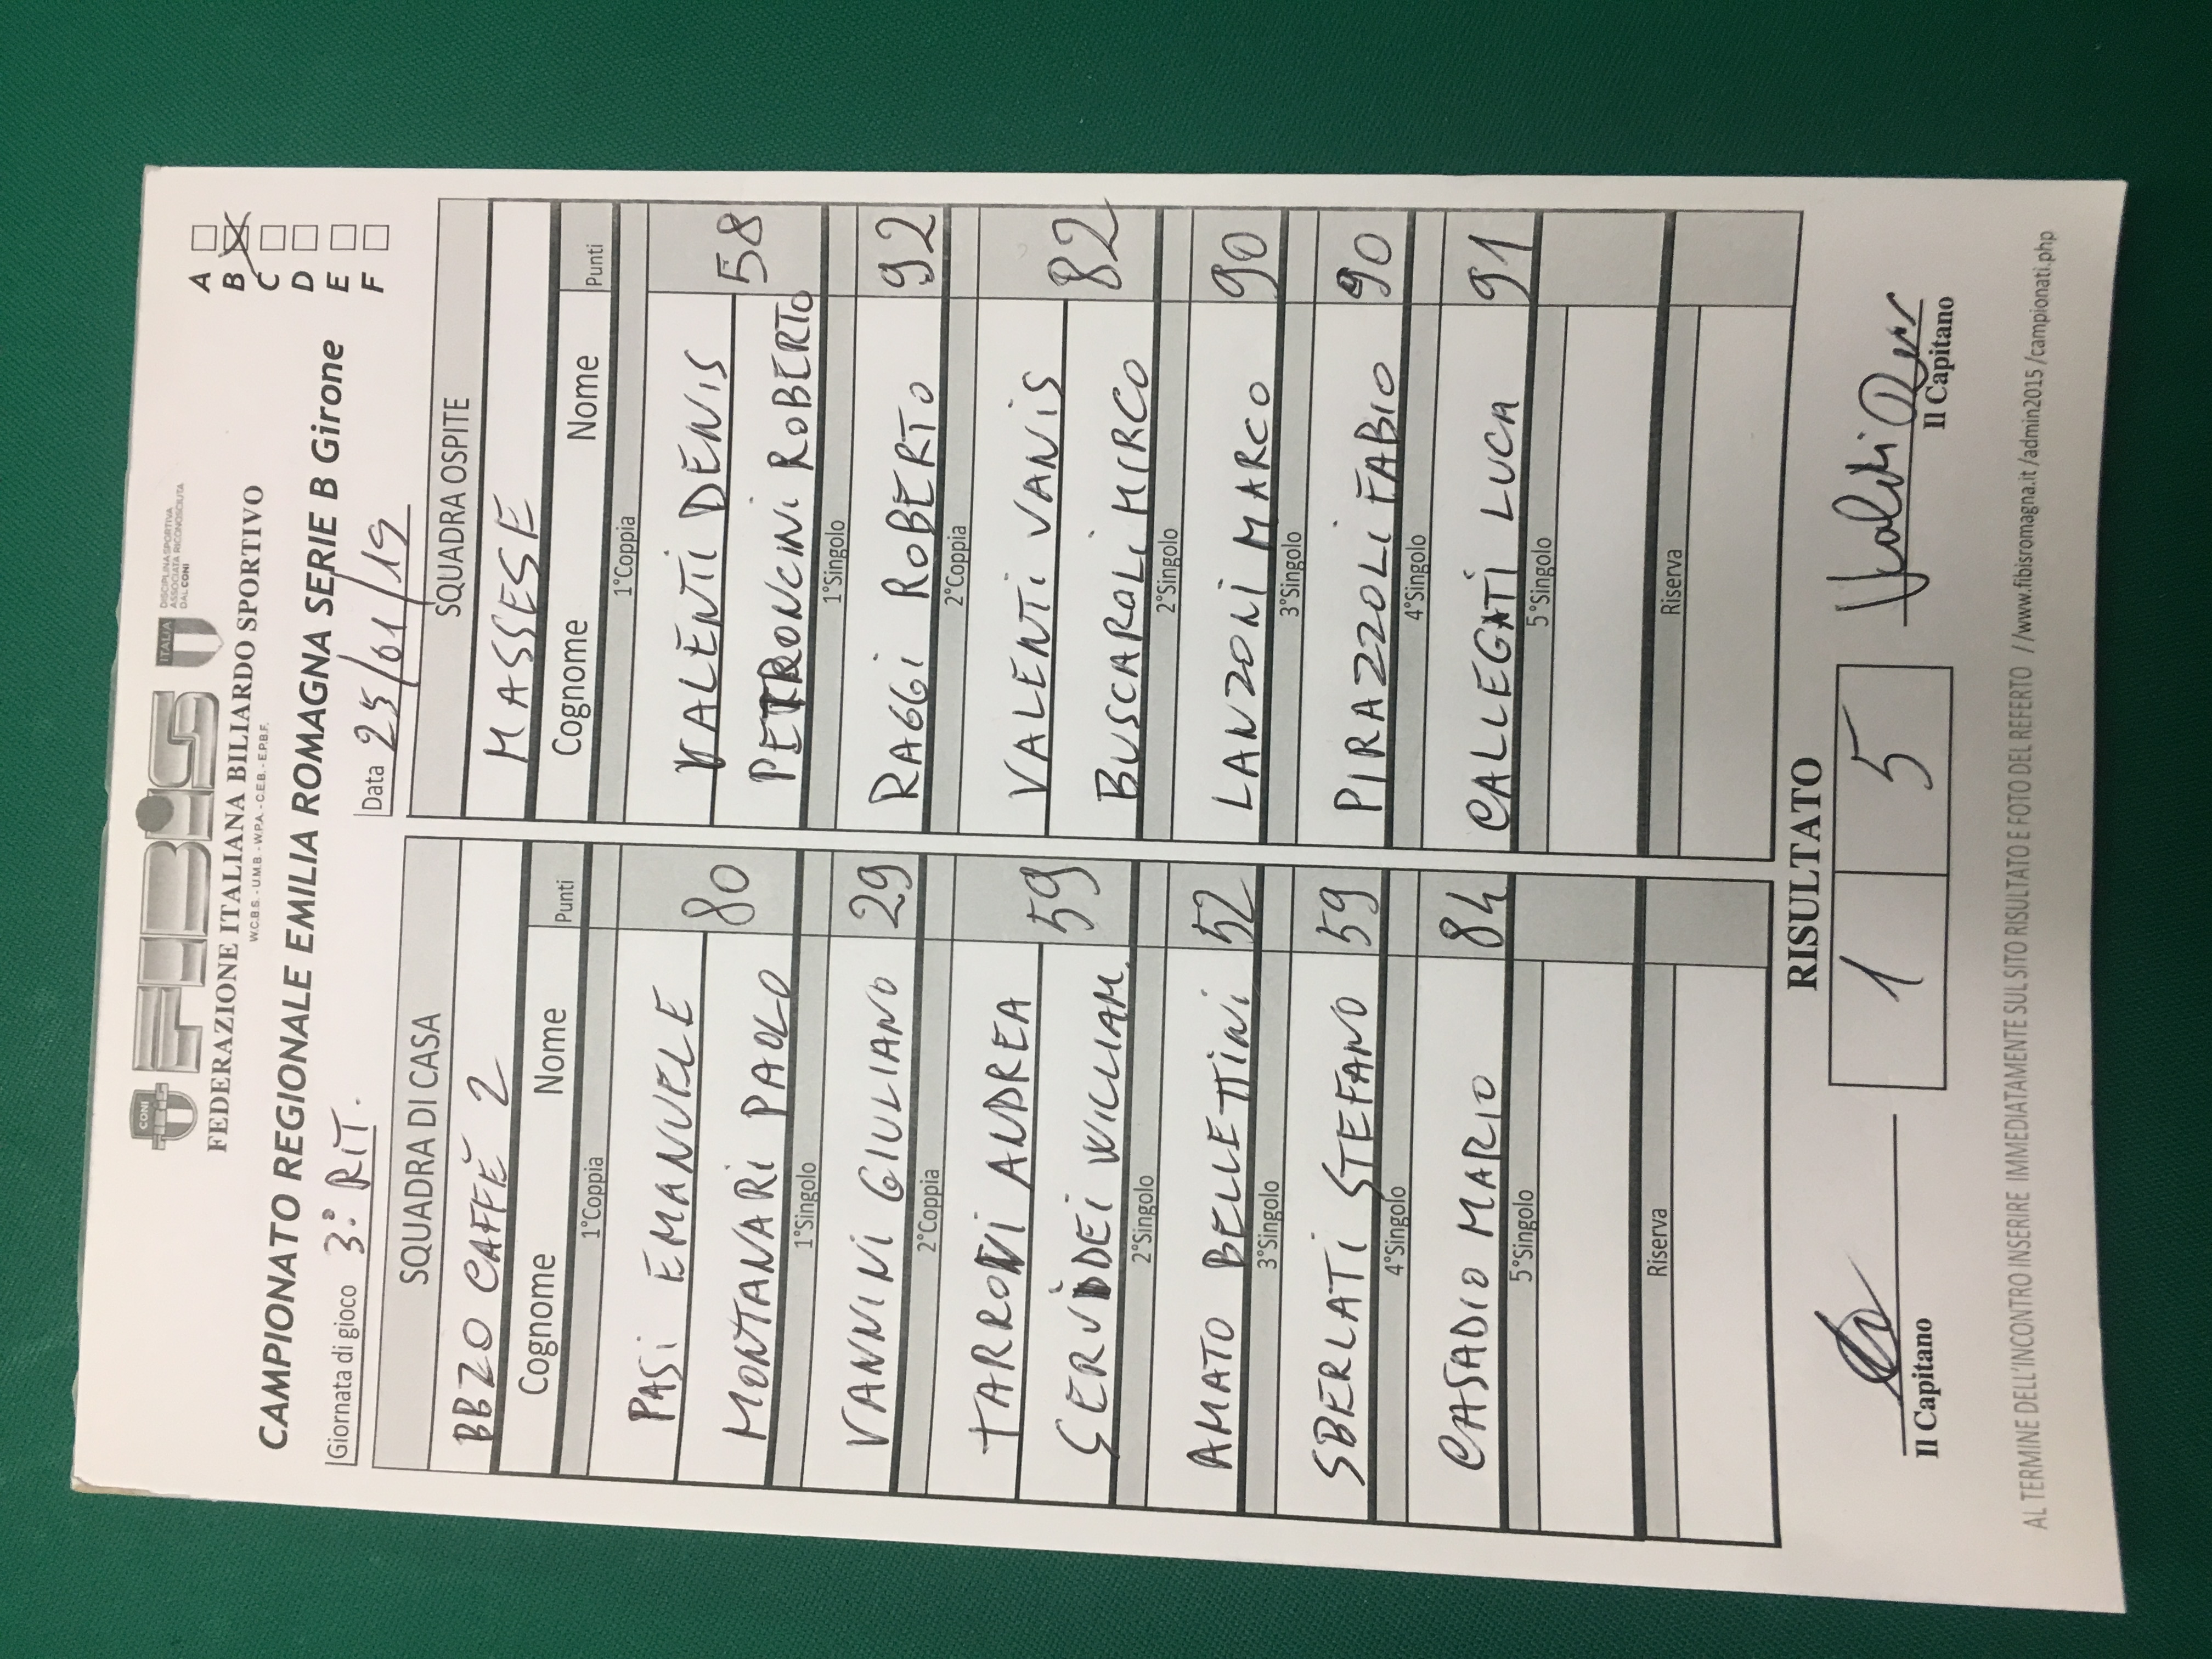 CONI
FIBiS
ITALIA
DISCIPLINA SPORTIVA
ASSOCIATA RICONOSCIUTA
DAL CONI
FEDERAZIONE ITALIANA BILIARDO SPORTIVO
W.C.B.S. - U.M.B. - W.P.A. - C.E.B. - E.P.B.F.
CAMPIONATO REGIONALE EMILIA ROMAGNA SERIE B Girone
A
B
C
D
E
F
Giornata di gioco 3.° RIT.
Data 25/01/19
SQUADRA DI CASA
BBZO CAFFÈ 2
Cognome Nome Punti
1°Coppia
PASI EMANUELE
MONTANARI PAOLO 80
1°Singolo
VANNINI GIULIANO 29
2°Coppia
TARRONI ANDREA
SERVIDEI WILLIAM. 59
2°Singolo
AMATO BELLETTINI 52
3°Singolo
SBERLATI STEFANO 59
4°Singolo
CASADIO MARIO 84
5°Singolo
Riserva
SQUADRA OSPITE
MASSESE
Cognome Nome Punti
1°Coppia
VALENTI DENIS
PETRONCINI ROBERTO 58
1°Singolo
RAGGI ROBERTO 92
2°Coppia
VALENTI VANIS
BUSCAROLI MIRCO 82
2°Singolo
LANZONI MARCO 90
3°Singolo
PIRAZZOLI FABIO 90
4°Singolo
CALLEGATI LUCA 91
5°Singolo
Riserva
RISULTATO
1 5
Il Capitano
Il Capitano
AL TERMINE DELL'INCONTRO INSERIRE IMMEDIATAMENTE SUL SITO RISULTATO E FOTO DEL REFERTO //www.fibisromagna.it/admin2015/campionati.php